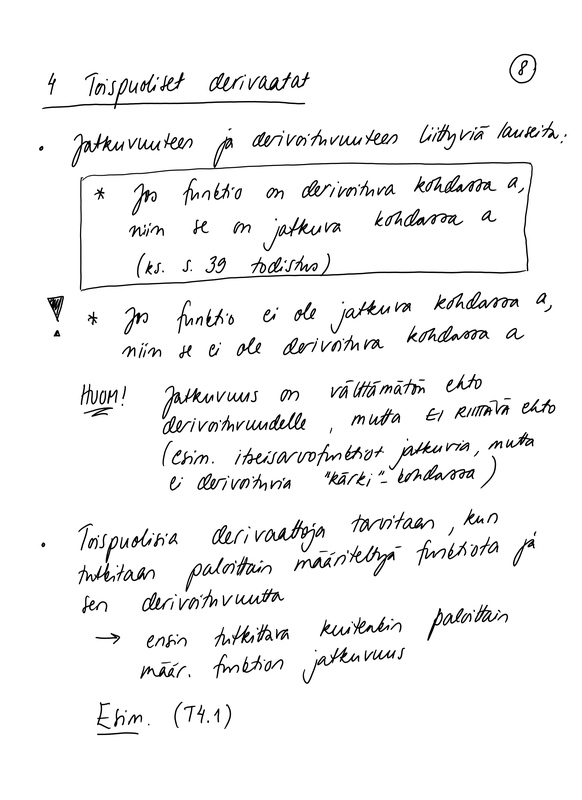 8
4 Toispuoliset derivaatat
• Jatkuvuuteen ja derivoituvuuteen liittyviä lauseita:
* Jos funktio on derivoituva kohdassa a,
niin se on jatkuva kohdassa a
(ks. s. 39 todistus)
! * Jos funktio ei ole jatkuva kohdassa a,
niin se ei ole derivoituva kohdassa a
HUOM! Jatkuvuus on välttämätön ehto
derivoituvuudelle, mutta EI RIITTÄVÄ ehto
(esim. itseisarvofunktiot jatkuvia, mutta
ei derivoituvia "kärki"-kohdassa)
• Toispuolisia derivaattoja tarvitaan, kun
tutkitaan paloittain määriteltyä funktiota ja
sen derivoituvuutta
→ ensin tutkittava kuitenkin paloittain
määr. funktion jatkuvuus
Esim. (T4.1)